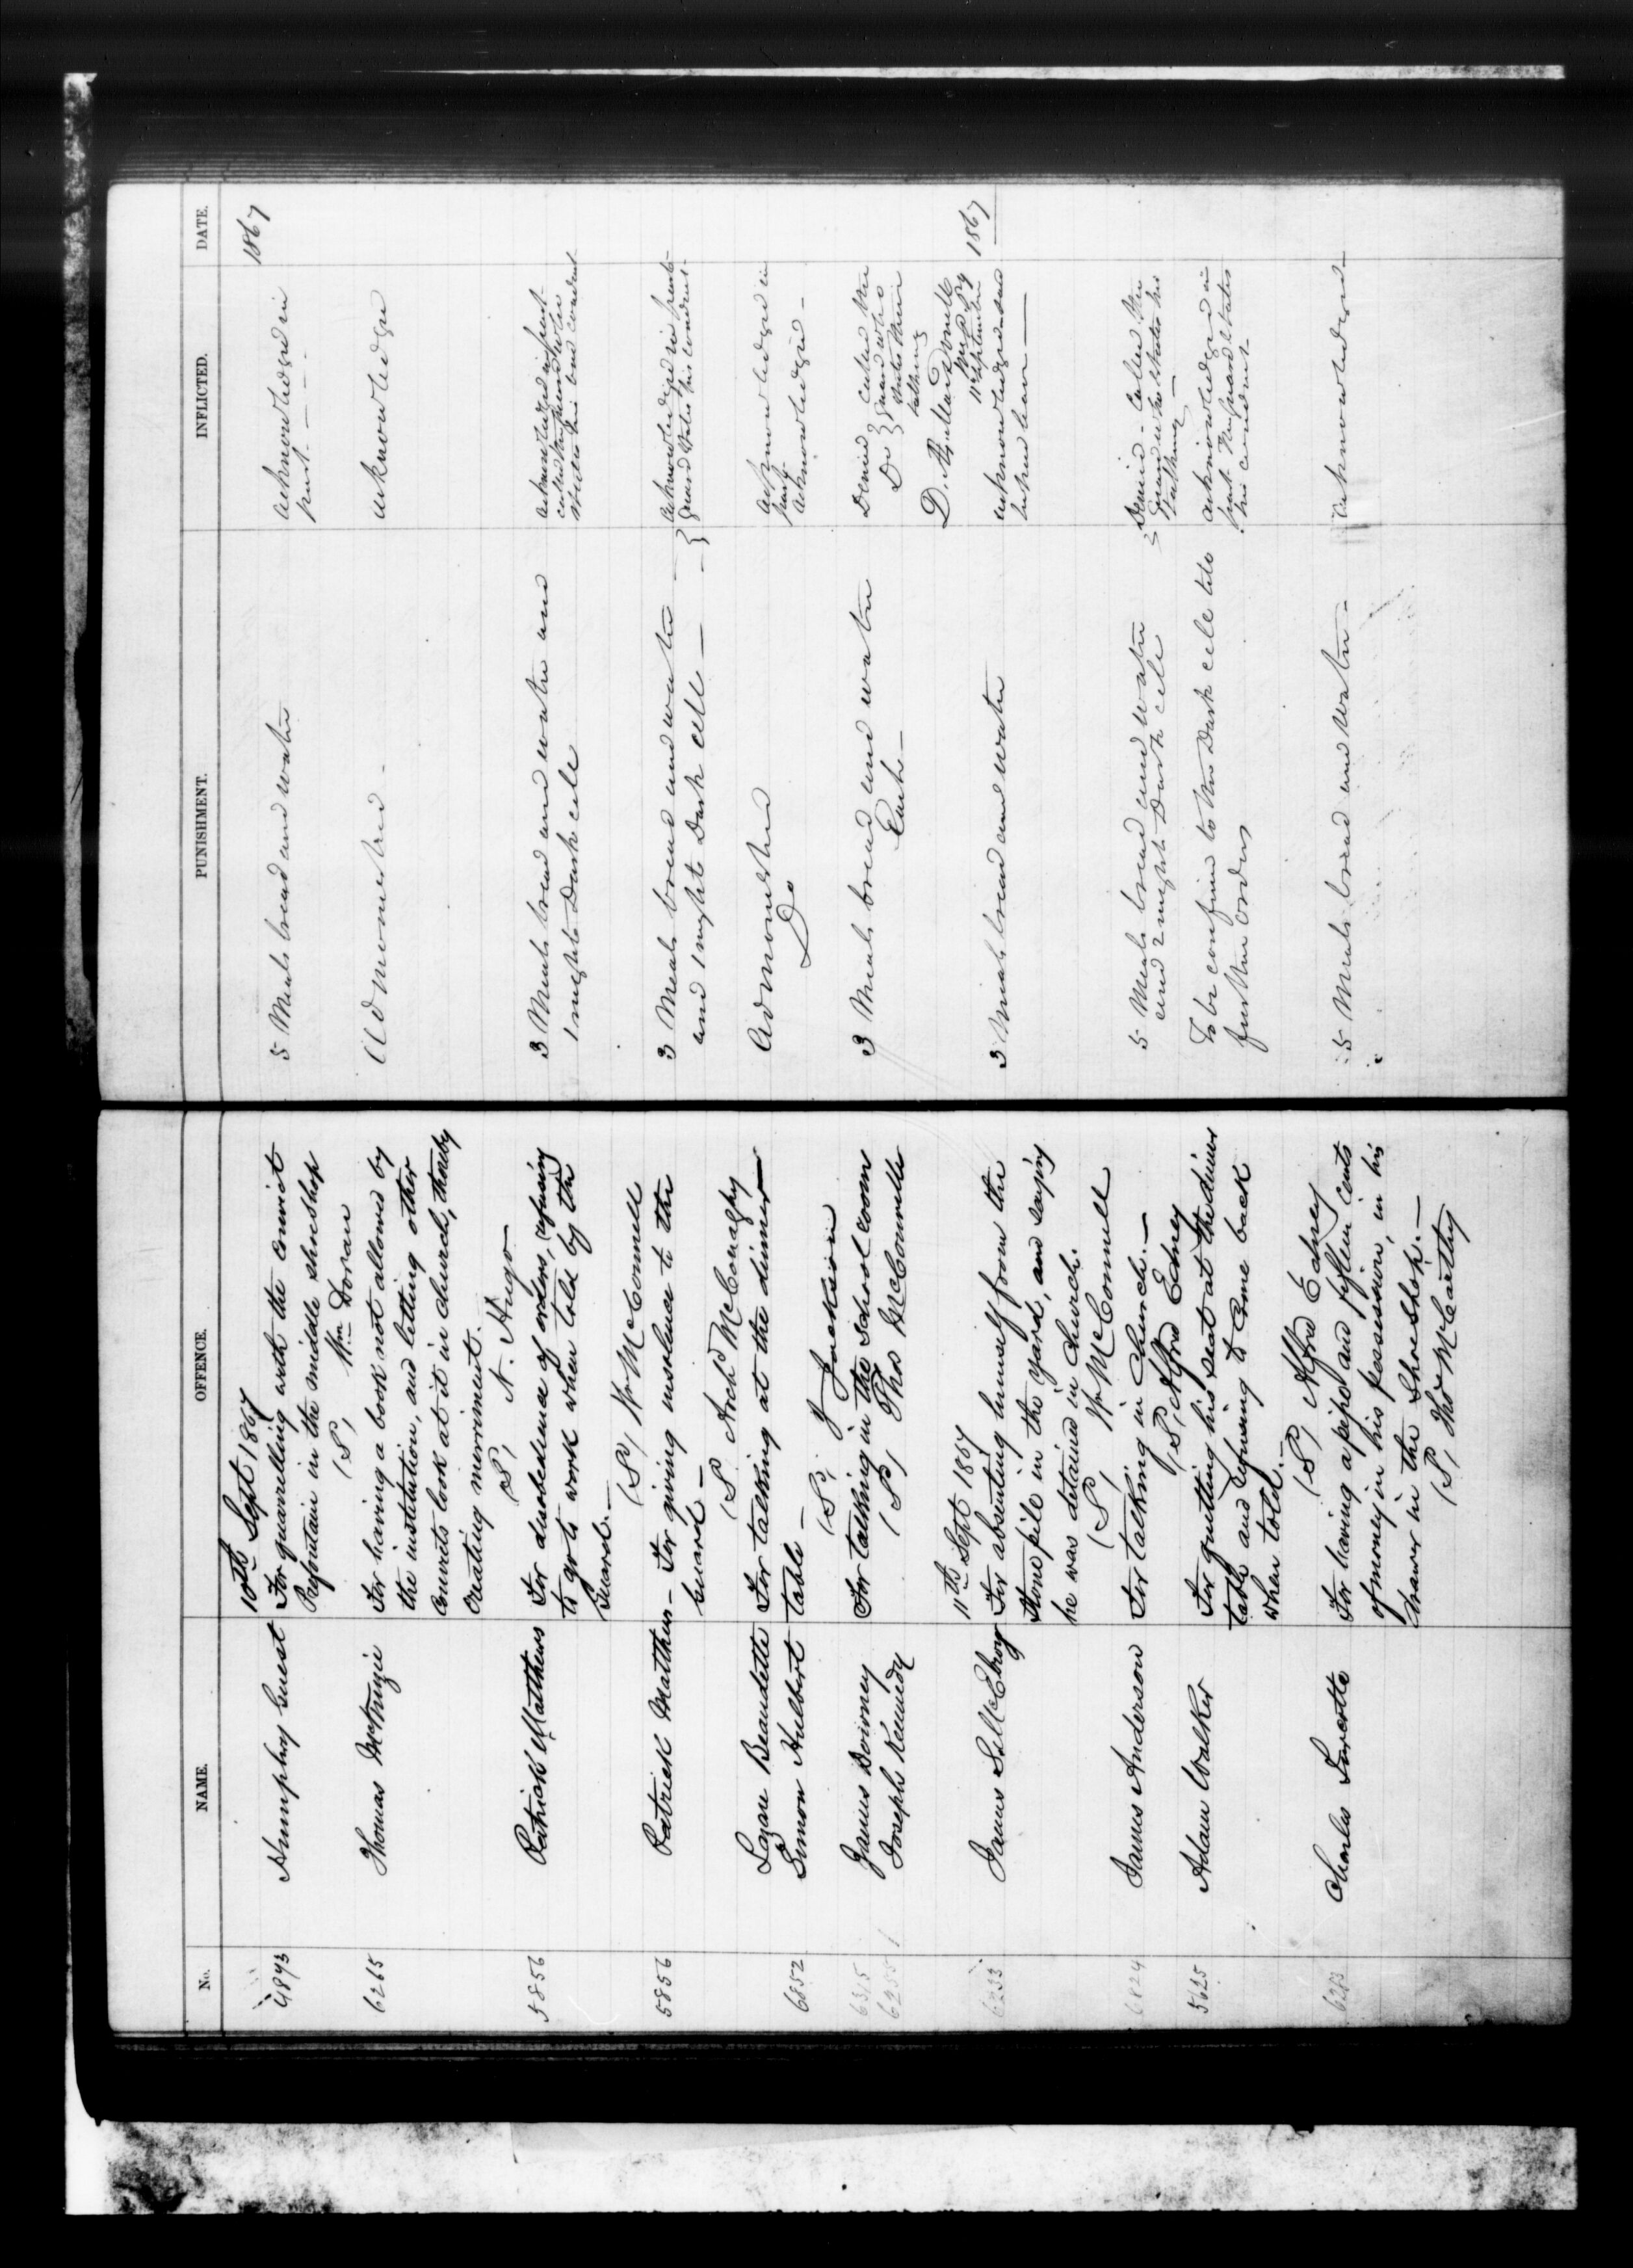 No. NAME. OFFENCE. PUNISHMENT. INFLICTED. DATE.
10th Sept 1867
1867
4893 Humphry Guest For quarrelling with the convict 5 Meals bread and water acknowledged in
Profontain in the middle shoeshop part
(S, Wm Doran
6265 Thomas McKenzie For having a book not allowed by Admonished - acknowledged
the institution, and letting other
convicts look at it in church, thereby
creating merriment.
(S, N. Hugo -
5856 Patrick Mathews For disobedience of orders, refusing 3 Meals bread and water and acknowledged in part
to go to work when told by the 1 night Dark cell called the guard who
Guard. - states his bad conduct
(S, W McConnell
5856 Patrick Mathews - For giving insolence to the 3 Meals bread and water acknowledged in part
guard - and 1 night Dark cell guard states his conduct
(S Archd McConaghy
Lazare Beaudette For talking at the dinner Admonished acknowledged in
part
6852 Simon Hulbert table - Do acknowledged -
(S, J Jackson
6315 James Downey For talking in the school room 3 Meals bread and water Denied called the
6255 Joseph Kennedy (S, Thos McConville Each - Do guard who
states their
talking
D. Æ. Macdonell
11th Sept 1867
11 September 1867
6233 James S. McElroy For absenting himself from the 3 Meals bread and water acknowledged
Stone pile in the yard, and saying
he was detained in Church.
(S, W McConnell
6824 James Anderson For talking in Church. - 5 Meals bread and water Denied - Called the
(S, Alfred Edney and 2 nights Dark cell Guard who states his
talking -
5625 Adam Walker For quitting his seat at the dinner To be confined to the Dark cell till acknowledged in
table and refusing to come back further orders part The guard states
when told. - his conduct
(S, Alfred Edney
6283 Charles For having a pipe and fifteen cents 5 Meals bread and water - acknowledged -
of money in his possession, in his
drawer in the Shoeshop. -
(S, Thos McCarthy